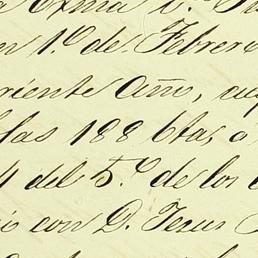 a Exma D.ª
n 1.º de Febrero
riente Año,
las 188 6tas, a
4 del 5.º de los
is con D. Jesus